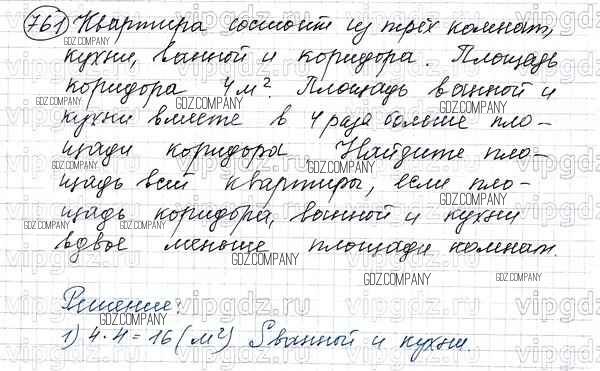 761 Квартира состоит из трёх комнат,
кухни, ванной и коридора. Площадь
коридора 4 м². Площадь ванной и
кухни вместе в 4 раза больше пло-
щади коридора. Найдите пло-
щадь всей квартиры, если пло-
щадь коридора, ванной и кухни
вдвое меньше площади комнат.
Решение:
1) 4·4=16 (м²) Sванной и кухни.